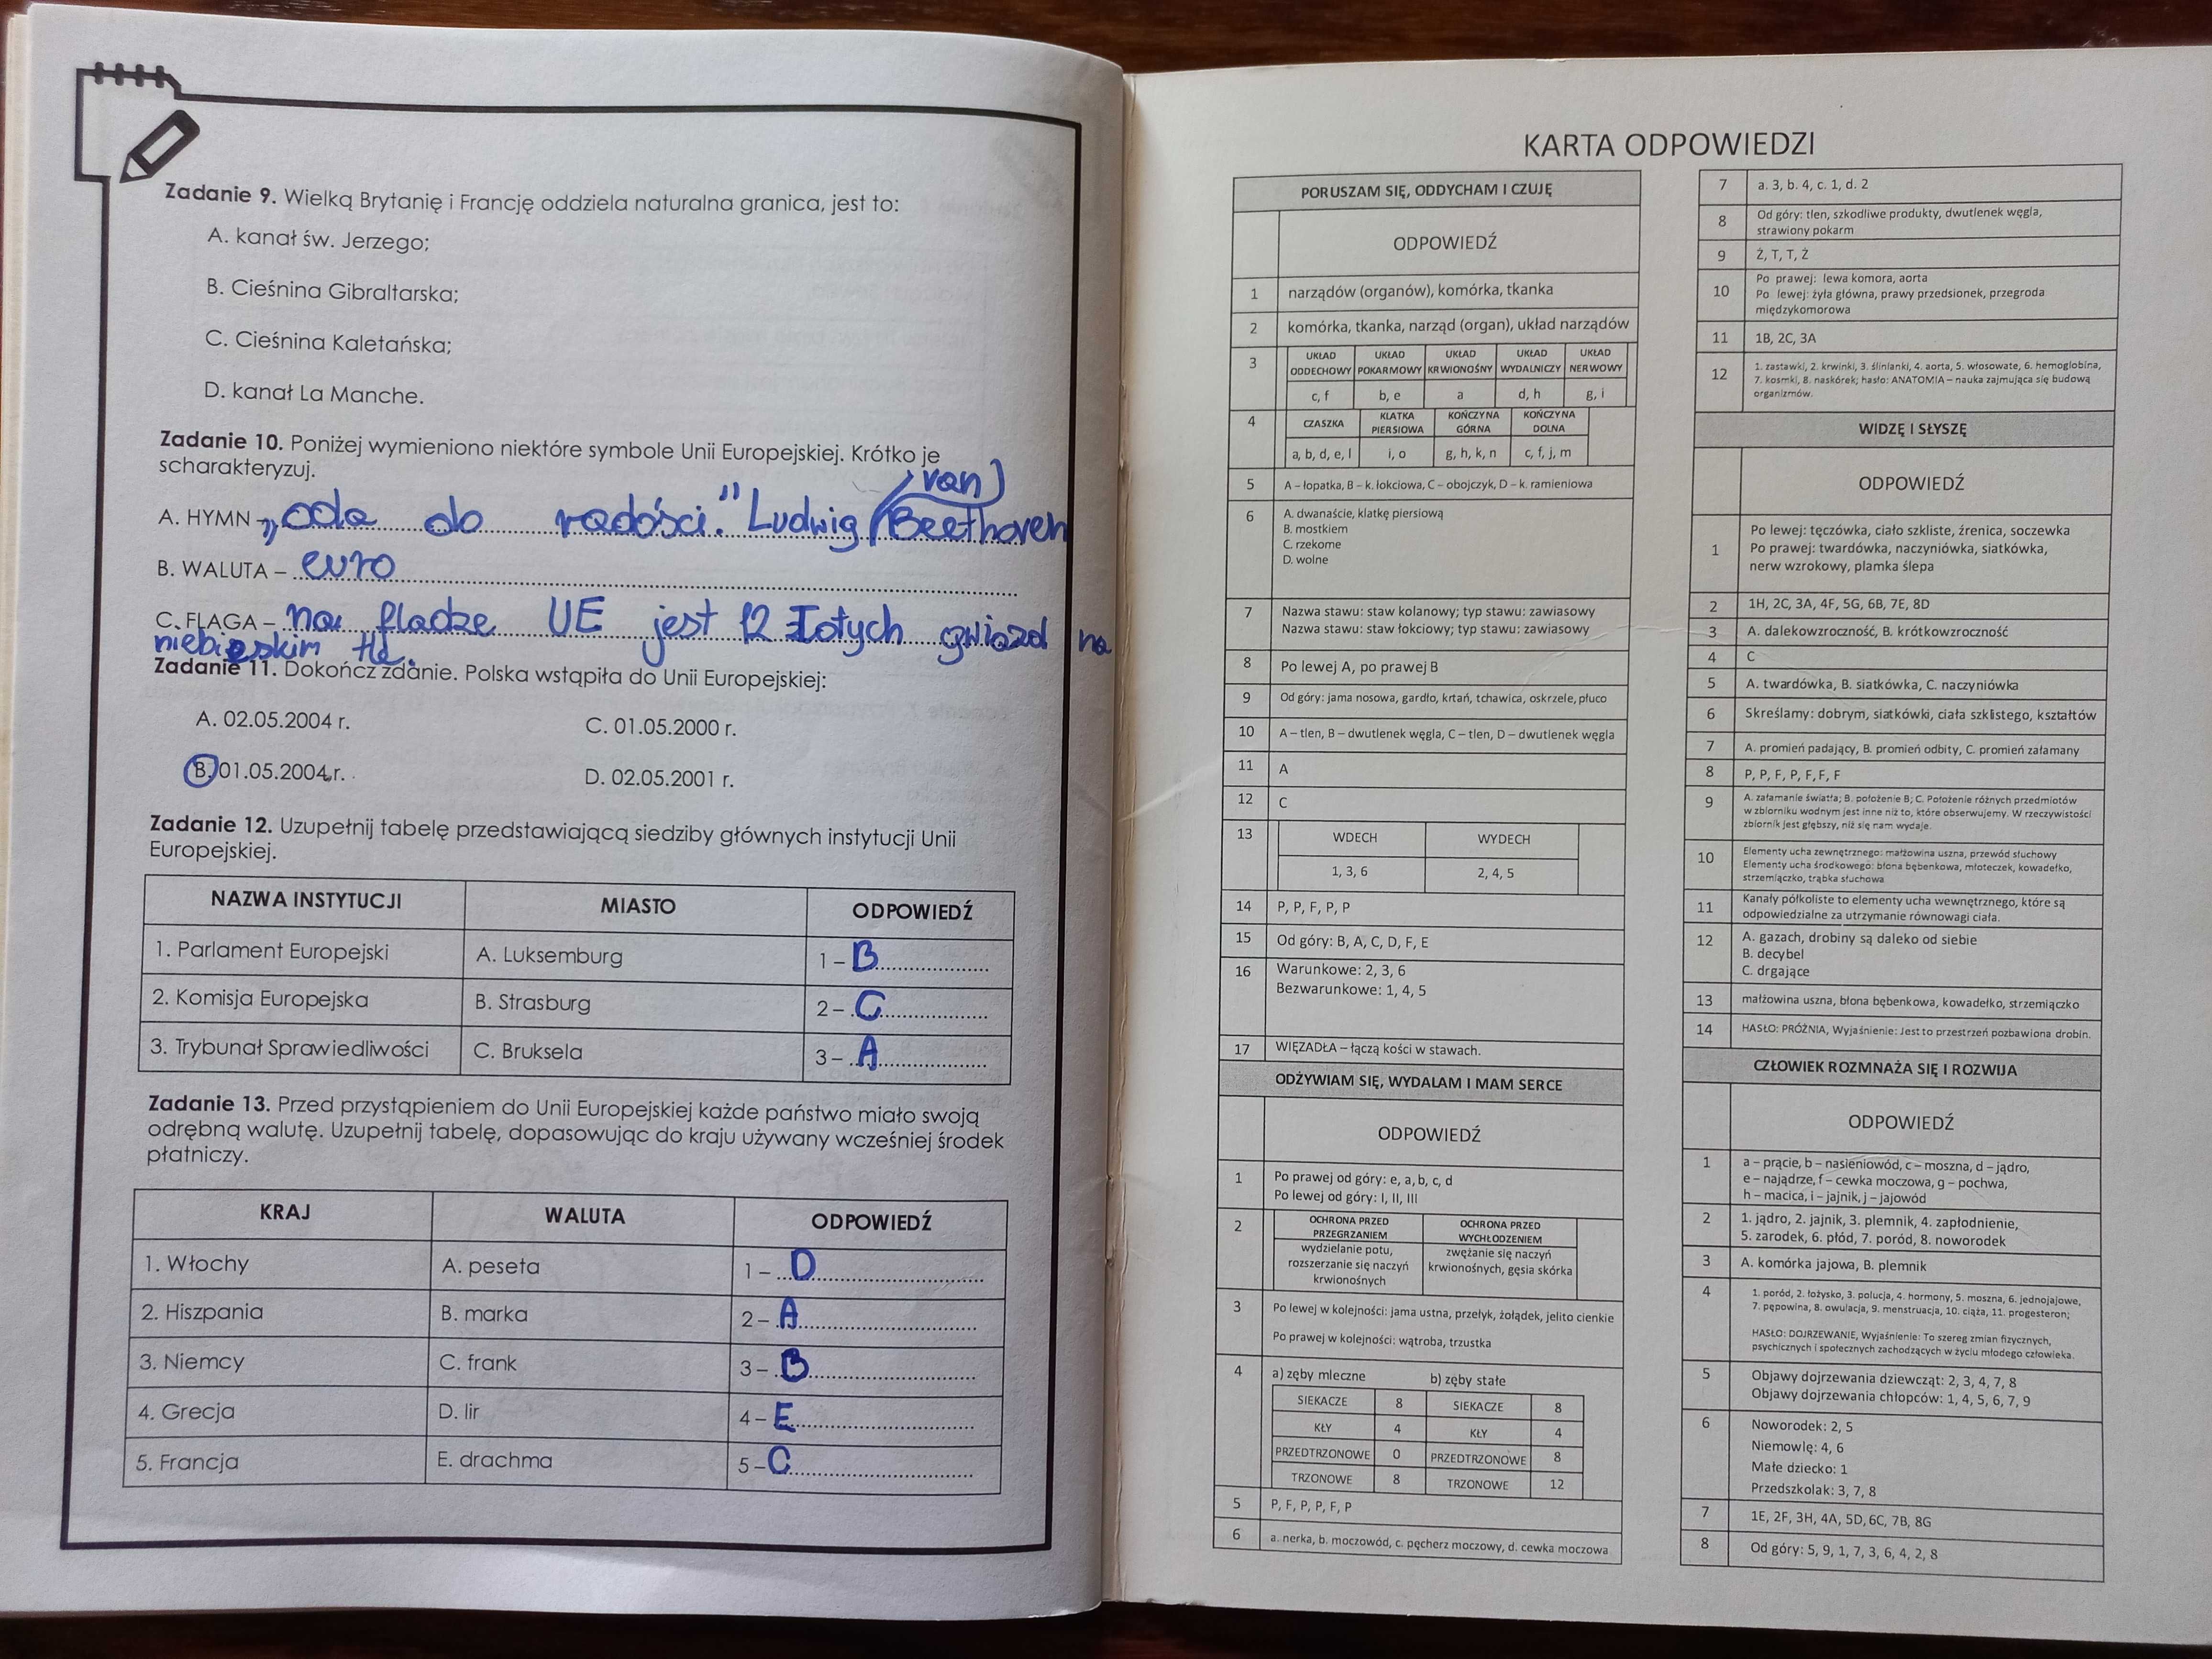 Zadanie 9. Wielką Brytanię i Francję oddziela naturalna granica, jest to:
A. kanał św. Jerzego;
B. Cieśnina Gibraltarska;
C. Cieśnina Kaletańska;
D. kanał La Manche.
Zadanie 10. Poniżej wymieniono niektóre symbole Unii Europejskiej. Krótko je
scharakteryzuj.
van
A. HYMN – „oda do radości." Ludwig Beethoven
B. WALUTA – euro
C. FLAGA – na fladze UE jest 12 złotych gwiazd na
niebieskim tle.
Zadanie 11. Dokończ zdanie. Polska wstąpiła do Unii Europejskiej:
A. 02.05.2004 r. C. 01.05.2000 r.
B. 01.05.2004 r. D. 02.05.2001 r.
Zadanie 12. Uzupełnij tabelę przedstawiającą siedziby głównych instytucji Unii
Europejskiej.
NAZWA INSTYTUCJI MIASTO ODPOWIEDŹ
1. Parlament Europejski A. Luksemburg 1 – B
2. Komisja Europejska B. Strasburg 2 – C
3. Trybunał Sprawiedliwości C. Bruksela 3 – A
Zadanie 13. Przed przystąpieniem do Unii Europejskiej każde państwo miało swoją
odrębną walutę. Uzupełnij tabelę, dopasowując do kraju używany wcześniej środek
płatniczy.
KRAJ WALUTA ODPOWIEDŹ
1. Włochy A. peseta 1 – D
2. Hiszpania B. marka 2 – A
3. Niemcy C. frank 3 – B
4. Grecja D. lir 4 – E
5. Francja E. drachma 5 – C
KARTA ODPOWIEDZI
PORUSZAM SIĘ, ODDYCHAM I CZUJĘ
ODPOWIEDŹ
1 narządów (organów), komórka, tkanka
2 komórka, tkanka, narząd (organ), układ narządów
3 UKŁAD UKŁAD UKŁAD UKŁAD UKŁAD
ODDECHOWY POKARMOWY KRWIONOŚNY WYDALNICZY NERWOWY
c, f b, e a d, h g, i
4 CZASZKA KLATKA KOŃCZYNA KOŃCZYNA
PIERSIOWA GÓRNA DOLNA
a, b, d, e, l i, o g, h, k, n c, f, j, m
5 A – łopatka, B – k. łokciowa, C – obojczyk, D – k. ramieniowa
6 A. dwanaście, klatkę piersiową
B. mostkiem
C. rzekome
D. wolne
7 Nazwa stawu: staw kolanowy; typ stawu: zawiasowy
Nazwa stawu: staw łokciowy; typ stawu: zawiasowy
8 Po lewej A, po prawej B
9 Od góry: jama nosowa, gardło, krtań, tchawica, oskrzele, płuco
10 A – tlen, B – dwutlenek węgla, C – tlen, D – dwutlenek węgla
11 A
12 C
13 WDECH WYDECH
1, 3, 6 2, 4, 5
14 P, P, F, P, P
15 Od góry: B, A, C, D, F, E
16 Warunkowe: 2, 3, 6
Bezwarunkowe: 1, 4, 5
17 WIĘZADŁA – łączą kości w stawach.
ODŻYWIAM SIĘ, WYDALAM I MAM SERCE
ODPOWIEDŹ
1 Po prawej od góry: e, a, b, c, d
Po lewej od góry: I, II, III
2 OCHRONA PRZED OCHRONA PRZED
PRZEGRZANIEM WYCHŁODZENIEM
wydzielanie potu, zwężanie się naczyń
rozszerzanie się naczyń krwionośnych, gęsia skórka
krwionośnych
3 Po lewej w kolejności: jama ustna, przełyk, żołądek, jelito cienkie
Po prawej w kolejności: wątroba, trzustka
4 a) zęby mleczne b) zęby stałe
SIEKACZE 8 SIEKACZE 8
KŁY 4 KŁY 4
PRZEDTRZONOWE 0 PRZEDTRZONOWE 8
TRZONOWE 8 TRZONOWE 12
5 P, F, P, P, F, P
6 a. nerka, b. moczowód, c. pęcherz moczowy, d. cewka moczowa
7 a. 3, b. 4, c. 1, d. 2
8 Od góry: tlen, szkodliwe produkty, dwutlenek węgla,
strawiony pokarm
9 Ż, T, T, Ż
10 Po prawej: lewa komora, aorta
Po lewej: żyła główna, prawy przedsionek, przegroda
międzykomorowa
11 1B, 2C, 3A
12 1. zastawki, 2. krwinki, 3. ślinianki, 4. aorta, 5. włosowate, 6. hemoglobina,
7. kosmki, 8. naskórek; hasło: ANATOMIA – nauka zajmująca się budową
organizmów.
WIDZĘ I SŁYSZĘ
ODPOWIEDŹ
1 Po lewej: tęczówka, ciało szkliste, źrenica, soczewka
Po prawej: twardówka, naczyniówka, siatkówka,
nerw wzrokowy, plamka ślepa
2 1H, 2C, 3A, 4F, 5G, 6B, 7E, 8D
3 A. dalekowzroczność, B. krótkowzroczność
4 C
5 A. twardówka, B. siatkówka, C. naczyniówka
6 Skreślamy: dobrym, siatkówki, ciała szklistego, kształtów
7 A. promień padający, B. promień odbity, C. promień załamany
8 P, P, F, P, F, F, F
9 A. załamanie światła; B. położenie B; C. Położenie różnych przedmiotów
w zbiorniku wodnym jest inne niż to, które obserwujemy. W rzeczywistości
zbiornik jest głębszy, niż się nam wydaje.
10 Elementy ucha zewnętrznego: małżowina uszna, przewód słuchowy
Elementy ucha środkowego: błona bębenkowa, młoteczek, kowadełko,
strzemiączko, trąbka słuchowa
11 Kanały półkoliste to elementy ucha wewnętrznego, które są
odpowiedzialne za utrzymanie równowagi ciała.
12 A. gazach, drobiny są daleko od siebie
B. decybel
C. drgające
13 małżowina uszna, błona bębenkowa, kowadełko, strzemiączko
14 HASŁO: PRÓŻNIA, Wyjaśnienie: Jest to przestrzeń pozbawiona drobin.
CZŁOWIEK ROZMNAŻA SIĘ I ROZWIJA
ODPOWIEDŹ
1 a – prącie, b – nasieniowód, c – moszna, d – jądro,
e – najądrze, f – cewka moczowa, g – pochwa,
h – macica, i – jajnik, j – jajowód
2 1. jądro, 2. jajnik, 3. plemnik, 4. zapłodnienie,
5. zarodek, 6. płód, 7. poród, 8. noworodek
3 A. komórka jajowa, B. plemnik
4 1. poród, 2. łożysko, 3. polucja, 4. hormony, 5. moszna, 6. jednojajowe,
7. pępowina, 8. owulacja, 9. menstruacja, 10. ciąża, 11. progesteron;
HASŁO: DOJRZEWANIE, Wyjaśnienie: To szereg zmian fizycznych,
psychicznych i społecznych zachodzących w życiu młodego człowieka.
5 Objawy dojrzewania dziewcząt: 2, 3, 4, 7, 8
Objawy dojrzewania chłopców: 1, 4, 5, 6, 7, 9
6 Noworodek: 2, 5
Niemowlę: 4, 6
Małe dziecko: 1
Przedszkolak: 3, 7, 8
7 1E, 2F, 3H, 4A, 5D, 6C, 7B, 8G
8 Od góry: 5, 9, 1, 7, 3, 6, 4, 2, 8